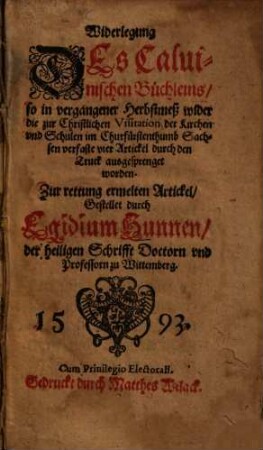 Widerlegung
DEs Calui-
nischen Büchleins/
so in vergangener Herbstmeß wider
die zur Christlichen Visitation, der Kirchen
vnd Schulen im Churfürstenthumb Sach-
sen verfaste vier Artickel durch den
Truck ausgesprenget
worden.
Zur rettung ermelten Artickel/
Gestellet durch
Egidium Hunnen/
der heiligen Schrifft Doctorn vnd
Professorn zu Wittemberg.
15 93.
Cum Privilegio Electorali.
Gedruckt durch Matthes Welack.